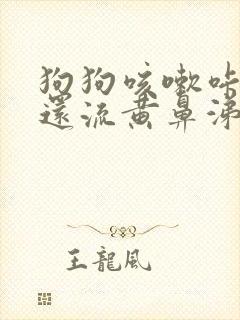 狗狗咳嗽咔
還流黄鼻涕
王龍風